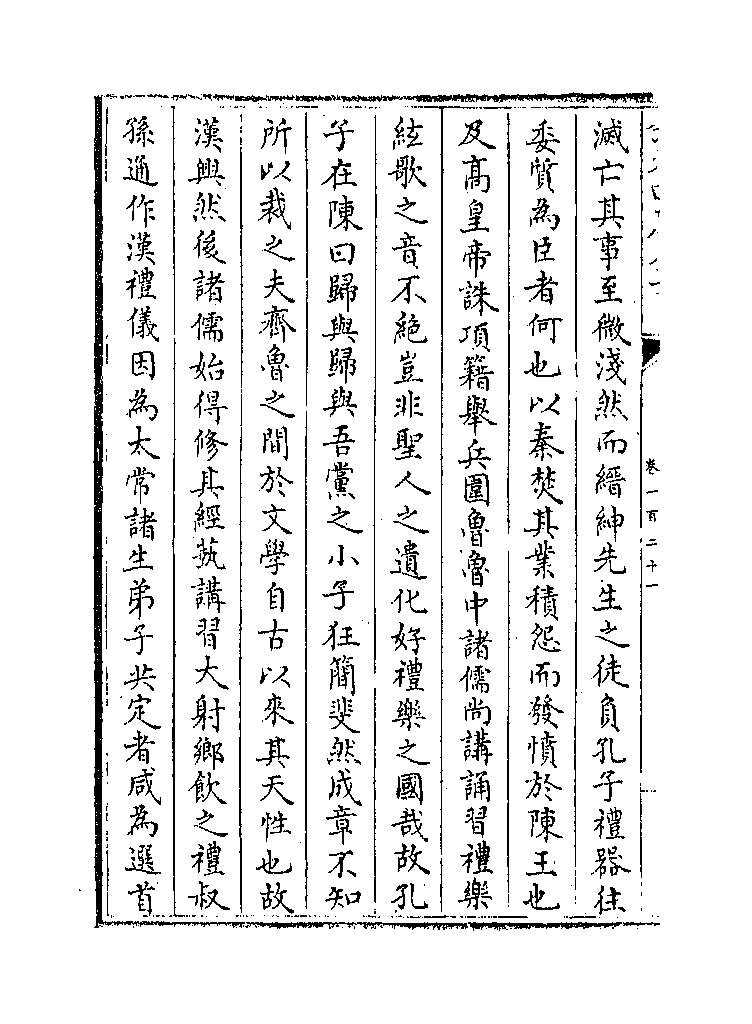 滅亡其事至微淺然而縉紳先生之徒負孔子禮器往
委質為臣者何也以秦焚其業積怨而發憤於陳王也
及髙皇帝誅項籍舉兵圍魯魯中諸儒尚講誦習禮樂
絃歌之音不絶豈非聖人之遺化好禮樂之國哉故孔
子在陳曰歸與歸與吾黨之小子狂簡斐然成章不知
所以裁之夫齊魯之間於文學自古以來其天性也故
漢興然後諸儒始得修其經蓺講習大射鄉飲之禮叔
孫通作漢禮儀因為太常諸生弟子共定者咸為選首
卷一百二十一